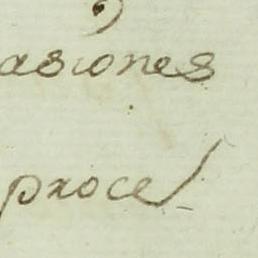 asiones
proce